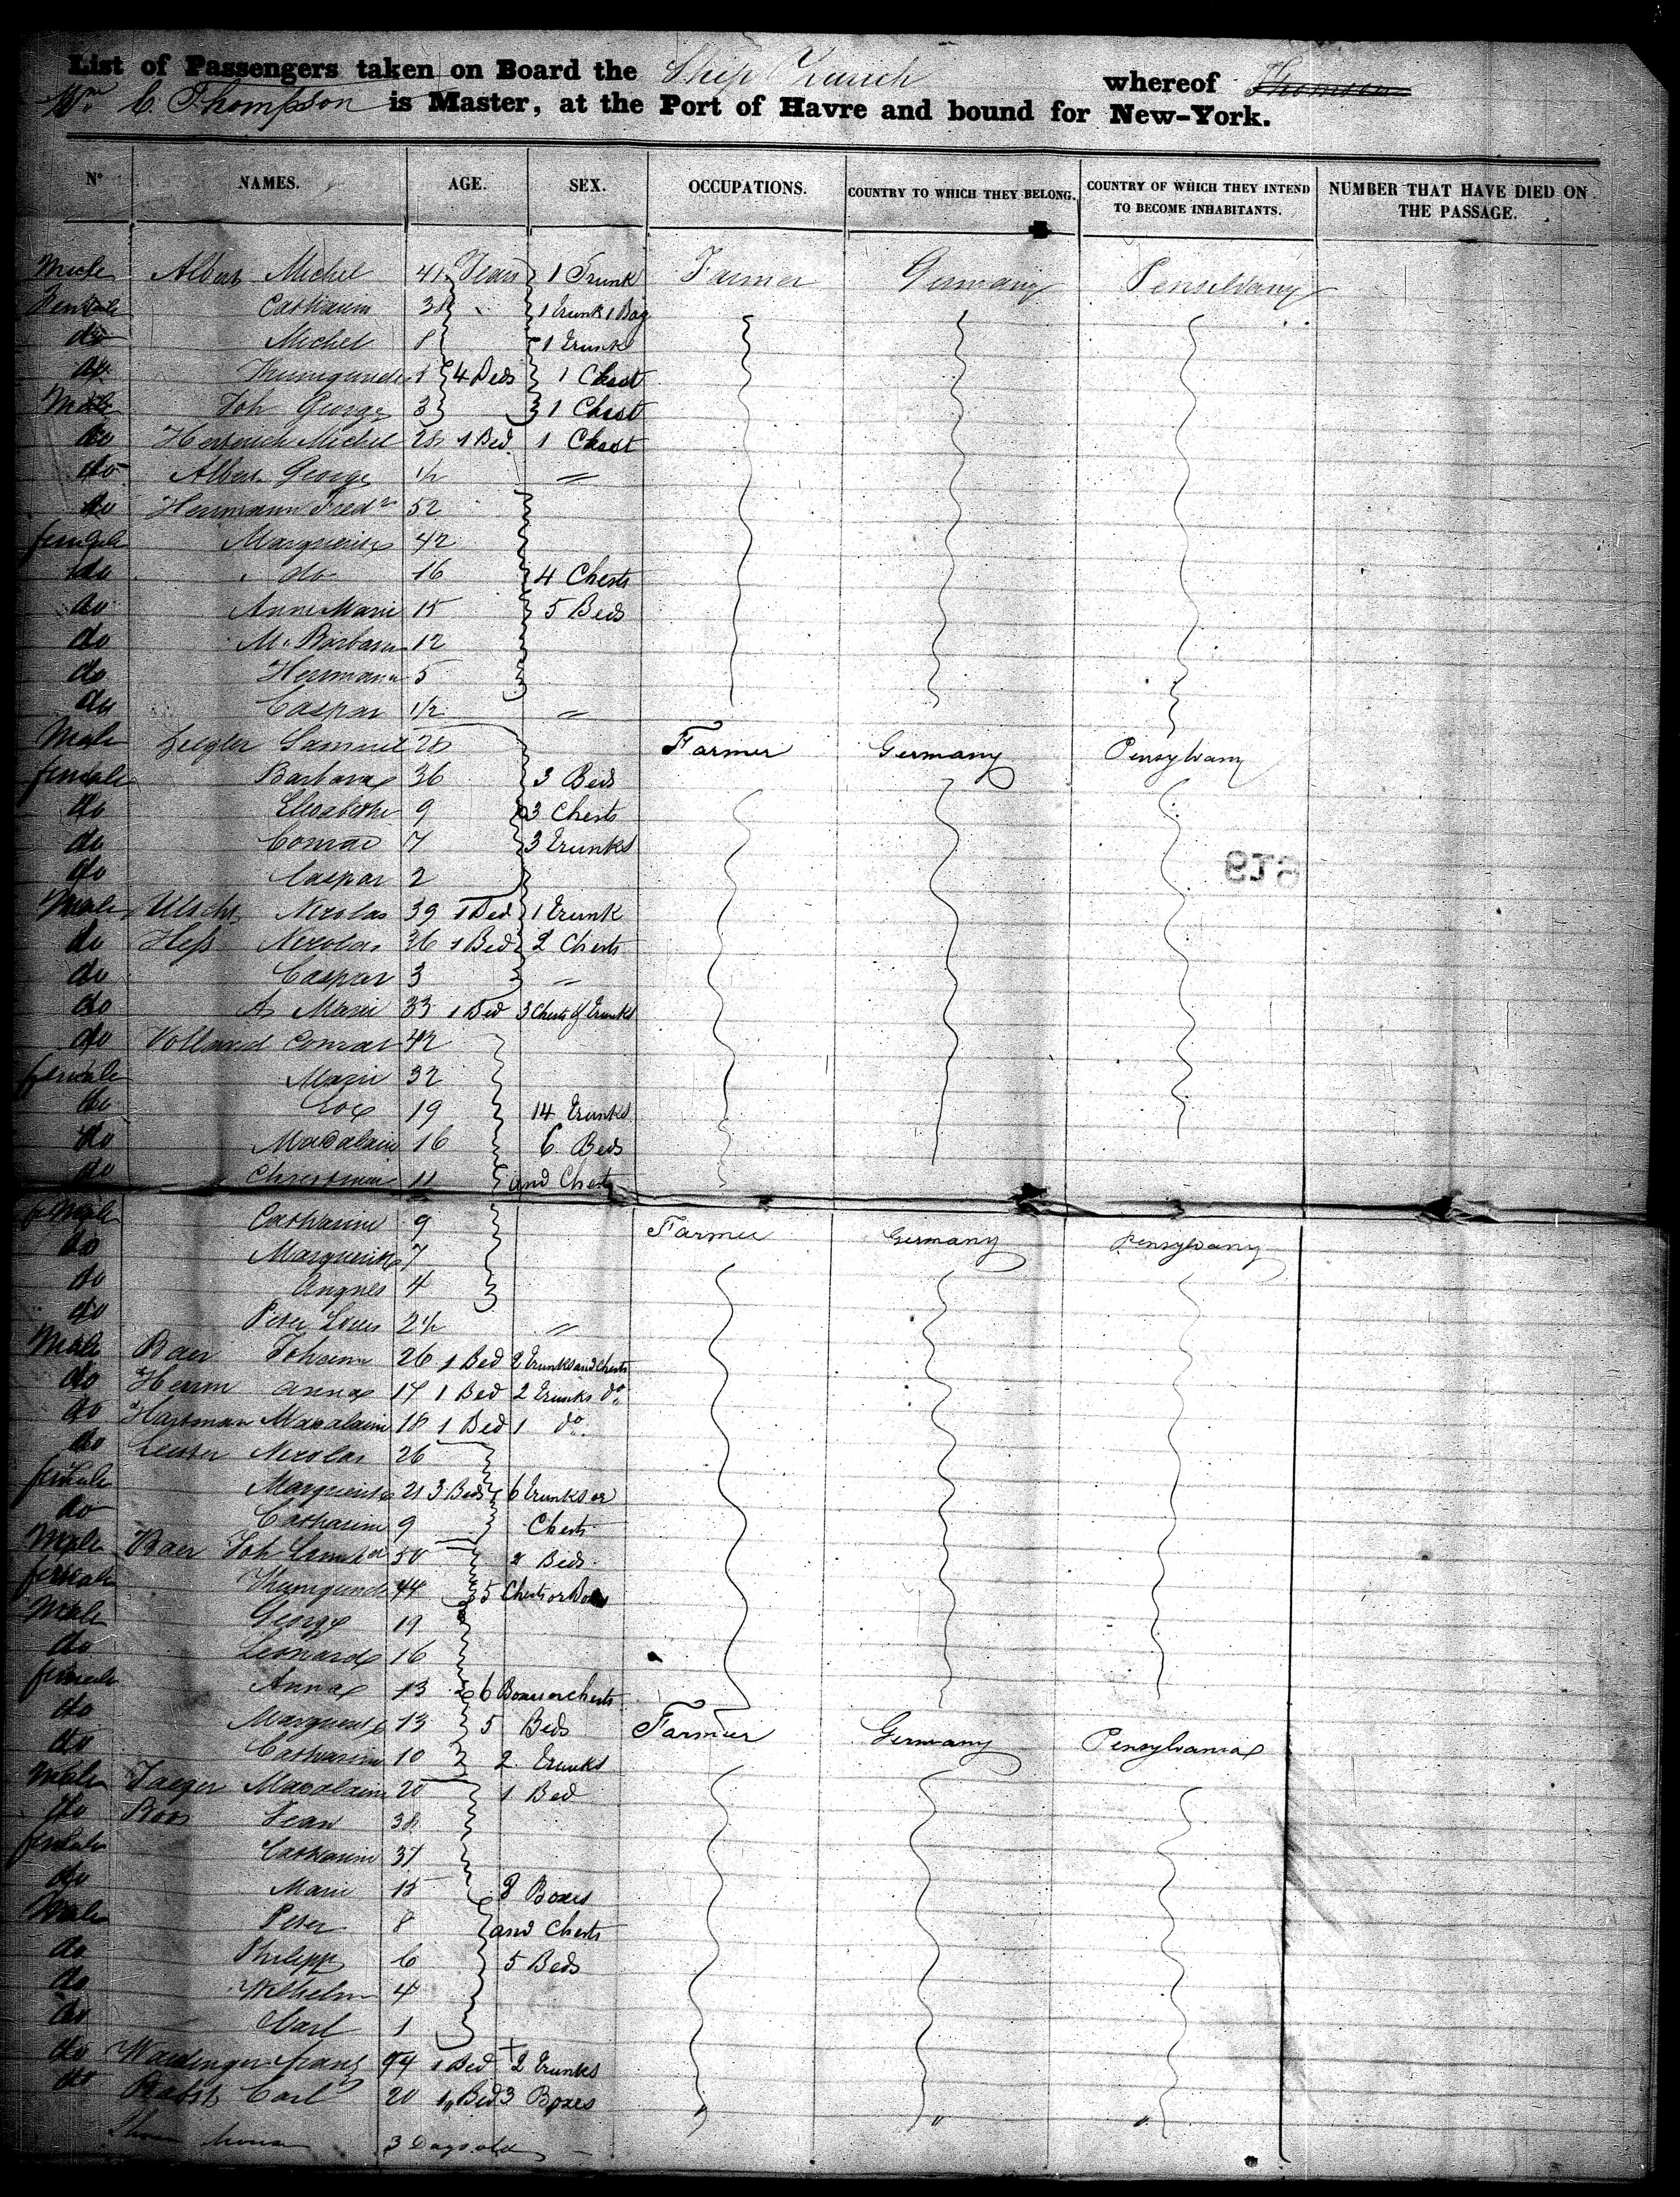 List of Passengers taken on Board the Ship whereof Thomson
Wm. C. Thompson is Master, at the Port of Havre and bound for New-York.
No NAMES. AGE. SEX. OCCUPATIONS. COUNTRY TO WHICH THEY BELONG. COUNTRY OF WHICH THEY INTEND TO BECOME INHABITANTS. NUMBER THAT HAVE DIED ON THE PASSAGE.
Male Albert Michel 41 Years 1 Trunk Farmer Germany Pensilvany
Female Catharin 38 1 Trunk 1 Bag
do Michel 8 1 Trunk
do Kunigunde 4 Beds 1 Chest
Male Joh George 3 1 Chest
do Michel 28 1 Bed 1 Chest
do Albert George 1/2 "
do Herrmann Fredr 52
female Marguerite 42
do do 16 4 Chests
do Anne Marie 15 5 Beds
do M. Barbara 12
do Herrmann 5
do Caspar 1/2 "
Male Ziegler Samuel 28 Farmer Germany Pensylvany
female Barbara 36 3 Beds
do Elisabethe 9 3 Chests
do Conrad 7 3 Trunks
do Caspar 2
Male Nicolas 39 1 Bed 1 Trunk
do Heß Nicolas 36 1 Bed 2 Chests
do Caspar 3 "
do A Marie 33 1 Bed 3 Chests & Trunks
do Volland Conrad 42
female Marie 32
do 19 14 Trunks
do Madalain 16 6 Beds
do Christine 11 and Chests
female Catharine 9 Farmer Germany Pensylvany
do Marguerite 7
do Angnes 4
do Peter Louis 2 1/2 "
Male Baer Johann 26 1 Bed 2 Trunks and Chests
do Herrn Anna 17 1 Bed 2 Trunks do
do Hartman Madalaine 18 1 Bed 1 do
do Nicolas 26
female Marguerite 21 3 Beds 6 Trunks or
do Catharine 9 Chests
Male Baer Joh 50 2 Beds
female Kunigunde 44 5 Chests or Boxes
Male George 19
do Leonard 16
female Anna 13 6 Boxes or Chests
do Marguerite 13 5 Beds Farmer Germany Pensylvania
do Catharine 10 2 Trunks
Male Jaeger Madalaine 20 1 Bed
do Roos Jean 38
female Catharine 37
do Marie 15 8 Boxes
Male Peter 8 and Chests
do Philipp 6 5 Beds
do Wilhelm 4
do Carl 1
do Franz 1 Bed 2 Trunks
do Carl 20 1 Bed 3 Boxes " " "
3 Days old